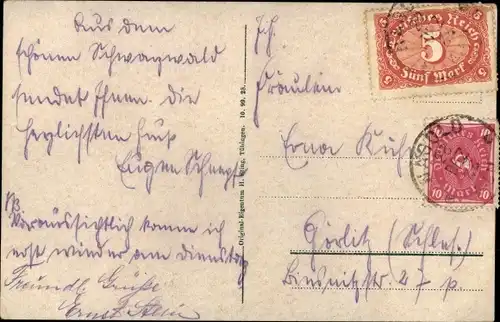 Aus dem
schönen Schwarzwald
sendet Ihnen die
herzlichsten Grüße
Eugen
P.S.
Voraussichtlich komme ich
erst wieder am Dienstag
Freundl. Grüße
Ernst Stein
Original-Eigentum H. Tübingen. 10. 90. 28.
Frl.
Fräulein
Erna
Görlitz (Schles.)
Biesnitzerstr. 27 p
Deutsches Reich
5
Fünf Mark
10 Mark 10